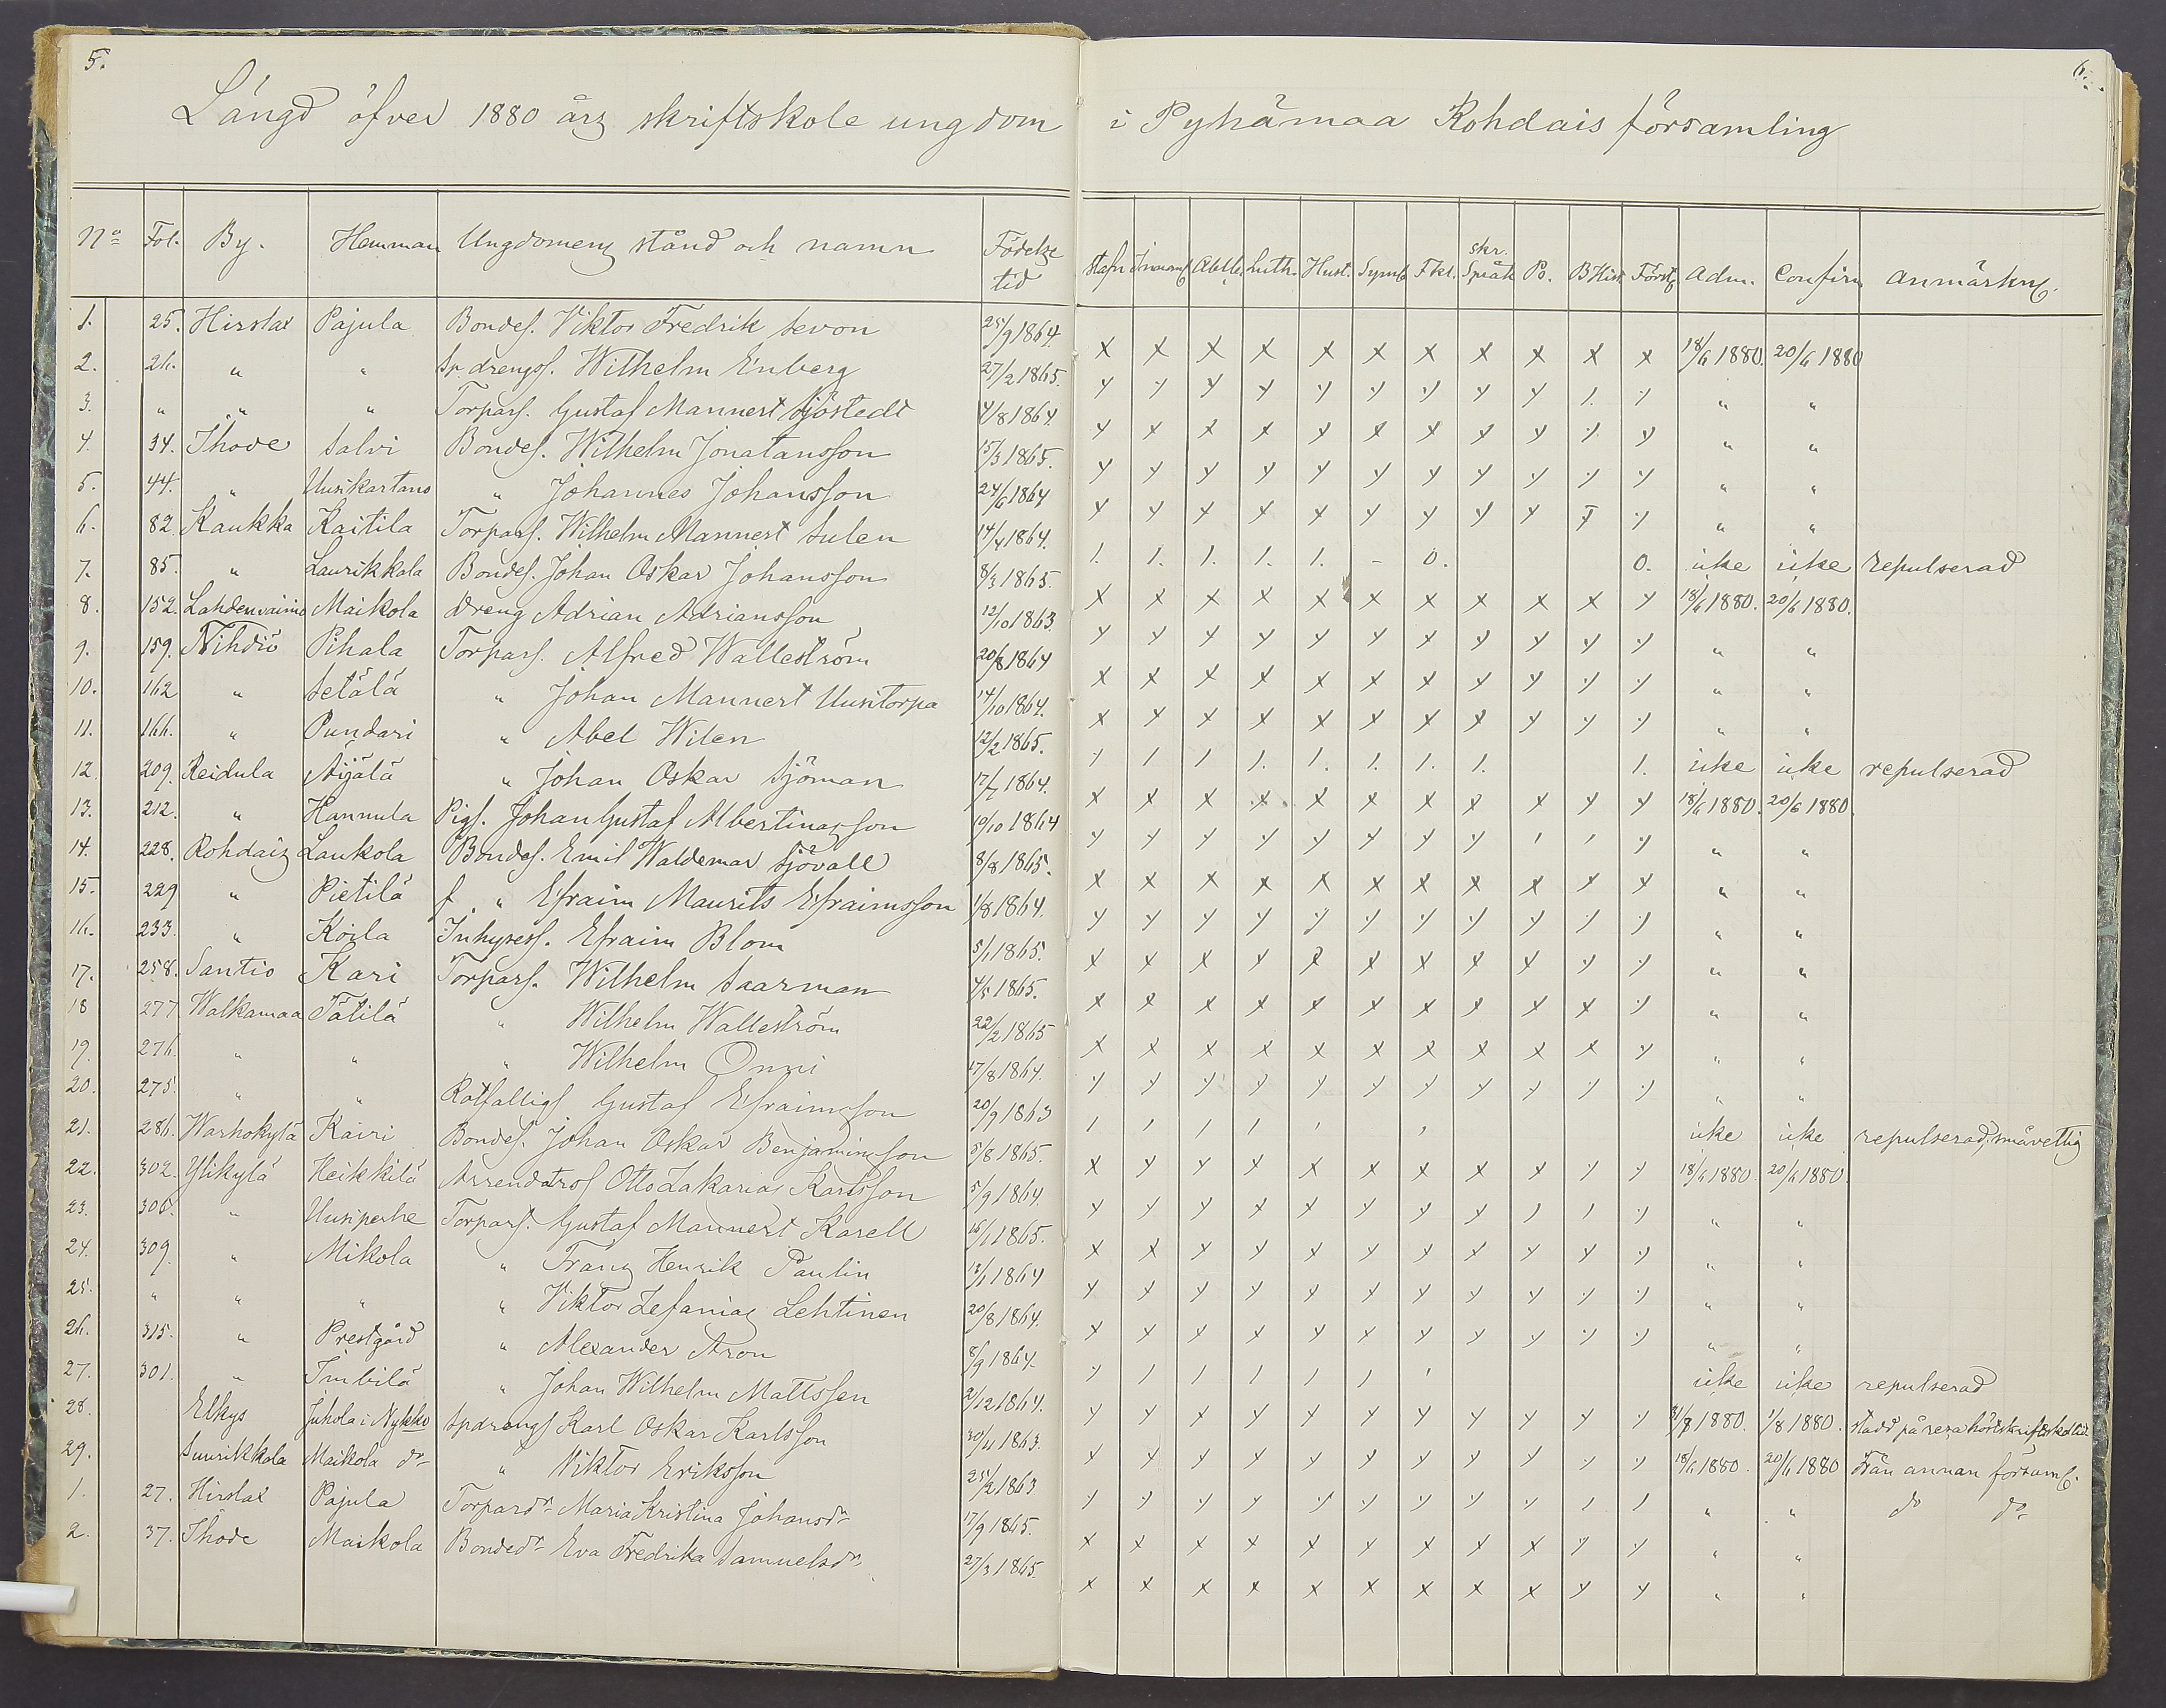 5.
6.
Längd öfver 1880 års skriftskole ungdom i Pyhämaa Rohdais församling
No Fol. By. Hemman Ungdomens stånd och namn Födelse tid Stafn Innanl Abcb. Luth. Hust. Symb Fkl. skr. Språk Ps. B Hist. Först. Adm. Confirm Anmärkn.
1. 25. Hirslax Pajula Bondes. Viktor Fredrik Sevon 25/9 1864. x x x x x x x x x x x 18/6 1880. 20/6 1880
2. 26. " " Sp. drengs. Wilhelm Enberg 27/2 1865. " "
3. " " " Torpars. Gustaf Mannert Sjöstedt 4/8 1864. " "
4. 34. Ihode Salvi Bondes. Wilhelm Jonatansson 15/3 1865. " "
5. 44. " Uusikartano " Johannes Johansson 24/6 1864 " "
6. 82. Kaukka Kaitila Torpars. Wilhelm Mannert Sulen 14/4 1864. 1. 1. 1. 1. 1. - 0. 0. icke icke repulserad
7. 85. " Laurikkala Bondes. Johan Oskar Johansson 8/3 1865. 18/6 1880. 20/6 1880.
8. 152. Lahdenvainio Maikola Dreng Adrian Adriansson 12/10 1863. " "
9. 159. Nihdiö Pihala Torpars. Alfred Walleström 20/8 1864 " "
10. 162 " Setälä " Johan Mannert Uusitorpa 14/10 1864. " "
11. 166. " Pundari " Abel Wilen 12/2 1865. icke icke repulserad
12. 209. Reidula Äijälä " Johan Oskar Sjöman 17/7 1864. 18/6 1880. 20/6 1880.
13. 212. " Hannula Pigs. Johan Gustaf Albertinasson 10/10 1864 " "
14. 228. Rohdais Laukola Bondes. Emil Waldemar Sjövall 8/8 1865. " "
15. 229 " Pietilä f. " Efraim Maurits Efraimsson 1/8 1864. " "
16. 233. " Koila Inhyses. Efraim Blom 5/1 1865. " "
17. 258. Santio Kari Torpars. Wilhelm Saarman 4/5 1865. " "
18 277 Walkamaa Tätilä " Wilhelm Walleström 22/2 1865 " "
19. 276. " " " Wilhelm Onni 17/8 1864. " "
20. 275. " " Rotfalligs Gustaf Efraimsson 20/9 1863 icke icke repulserad, småvettig
21. 286. Warhokylä Kairi Bondes. Johan Oskar Benjaminsson 5/8 1865. 18/6 1880. 20/6 1880.
22. 302. Ylikylä Heikkilä Arrendators Otto Zakarias Karlsson 5/9 1864. " "
23. 306. " Uusiperhe Torpars. Gustaf Mannert Karell 16/1 1865. " "
24. 309. " Mikola " Frans Henrik Paulin 13/1 1864 " "
25. " " " " Viktor Zefanias Lehtinen 20/8 1864. " "
26. 315. " Prestgård " Alexander Aron 8/9 1864. icke icke repulserad
27. 301. " Imbilä " Johan Wilhelm Mattssen 2/12 1864. 31/7 1880. 1/8 1880.
28. Elkys Juhola i Nykko Spdrengs Karl Oskar Karlsson 30/4 1863. 18/6 1880. 20/6 1880 Från annan församl.
29. Suurikkala Maikola do " Viktor Eriksson 25/2 1863. " " do do
1. 27. Hirslax Pajula Torpardr Maria Kristina Johansdr 17/9 1865. " "
2. 37. Ihode Maikola Bondedr Eva Fredrika Samuelsdr. 27/3 1865. " "